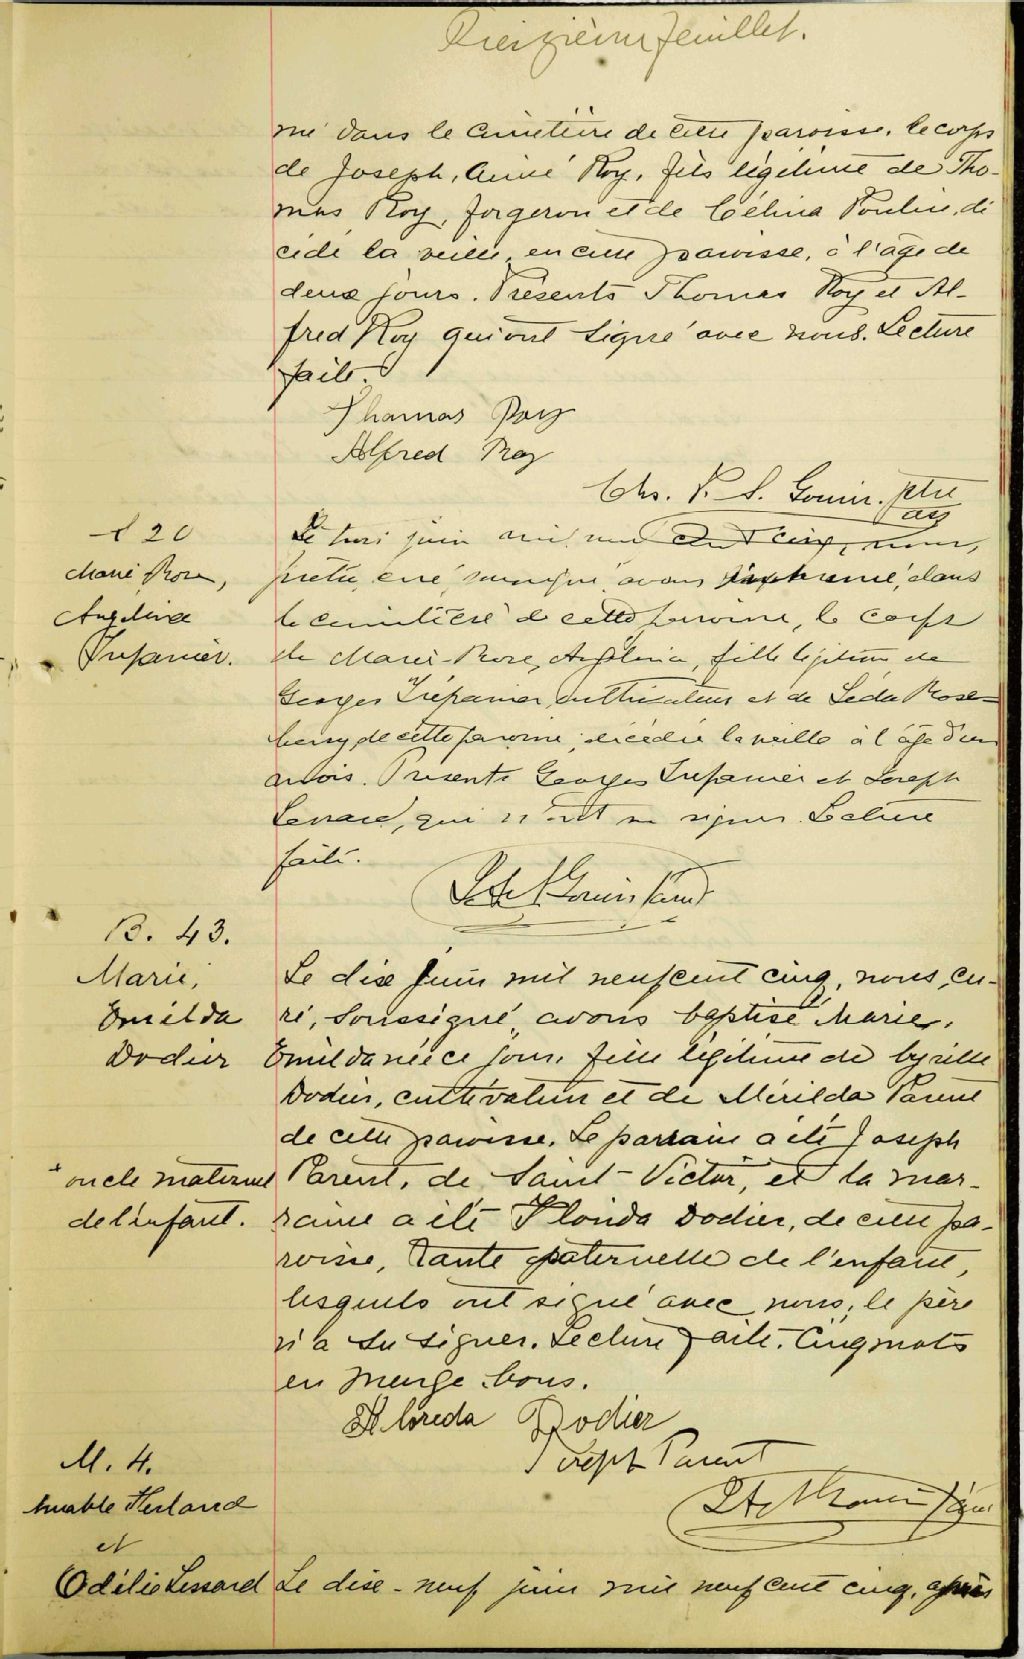 feuillet.
mé dans le cimetière de cette paroisse, le corps
de Joseph, Aimé Roy, fils légitime de Tho-
mas Roy, forgeron et de Célina Poulin, dé
cédé la veille, en cette paroisse, à l'âge de
deux jours. Présents Thomas Roy et Al-
fred Roy qui ont signé avec nous. Lecture
faite.
Thomas Roy
Alfred Roy
Chs. Gouin. ptre
20
Marie, Rose,
Angelina
Trépanier.
Le trois juin mil neuf cent cinq, nous,
prêtre, curé, soussigné avons inhumé, dans
le cimetière de cette paroisse, le corps
de Marie-Rose, Angélina, fille légitime de
Georges Trépanier, cultivateur et de Léda Rose-
berry, de cette paroisse, décédée la veille à l'âge d'un
mois. Présents Georges Trépanier et Joseph
Lessard, qui n'ont su signer. Lecture
faite.
Gouin
B. 43.
Marie,
Emilda
Dodier
Le dix juin mil neuf cent cinq, nous, cu-
ré, soussigné, avons baptisé Marie,
Emilda née ce jour, fille légitime de Cyrille
Dodier, cultivateur et de Mérilda Parent
de cette paroisse. Le parrain a été Joseph
+ oncle maternel
de l'enfant.
Parent, de Saint-Victor, et la mar-
raine a été Florida Dodier, de cette pa-
roisse, tante paternelle de l'enfant,
lesquels ont signé avec nous, le père
n'a su signer. Lecture faite. Cinq mots
en marge bons.
Floreda Dodier
Joseph Parent
M. 4.
et
Odélie Lessard
Le dix-neuf juin mil neuf cent cinq, après